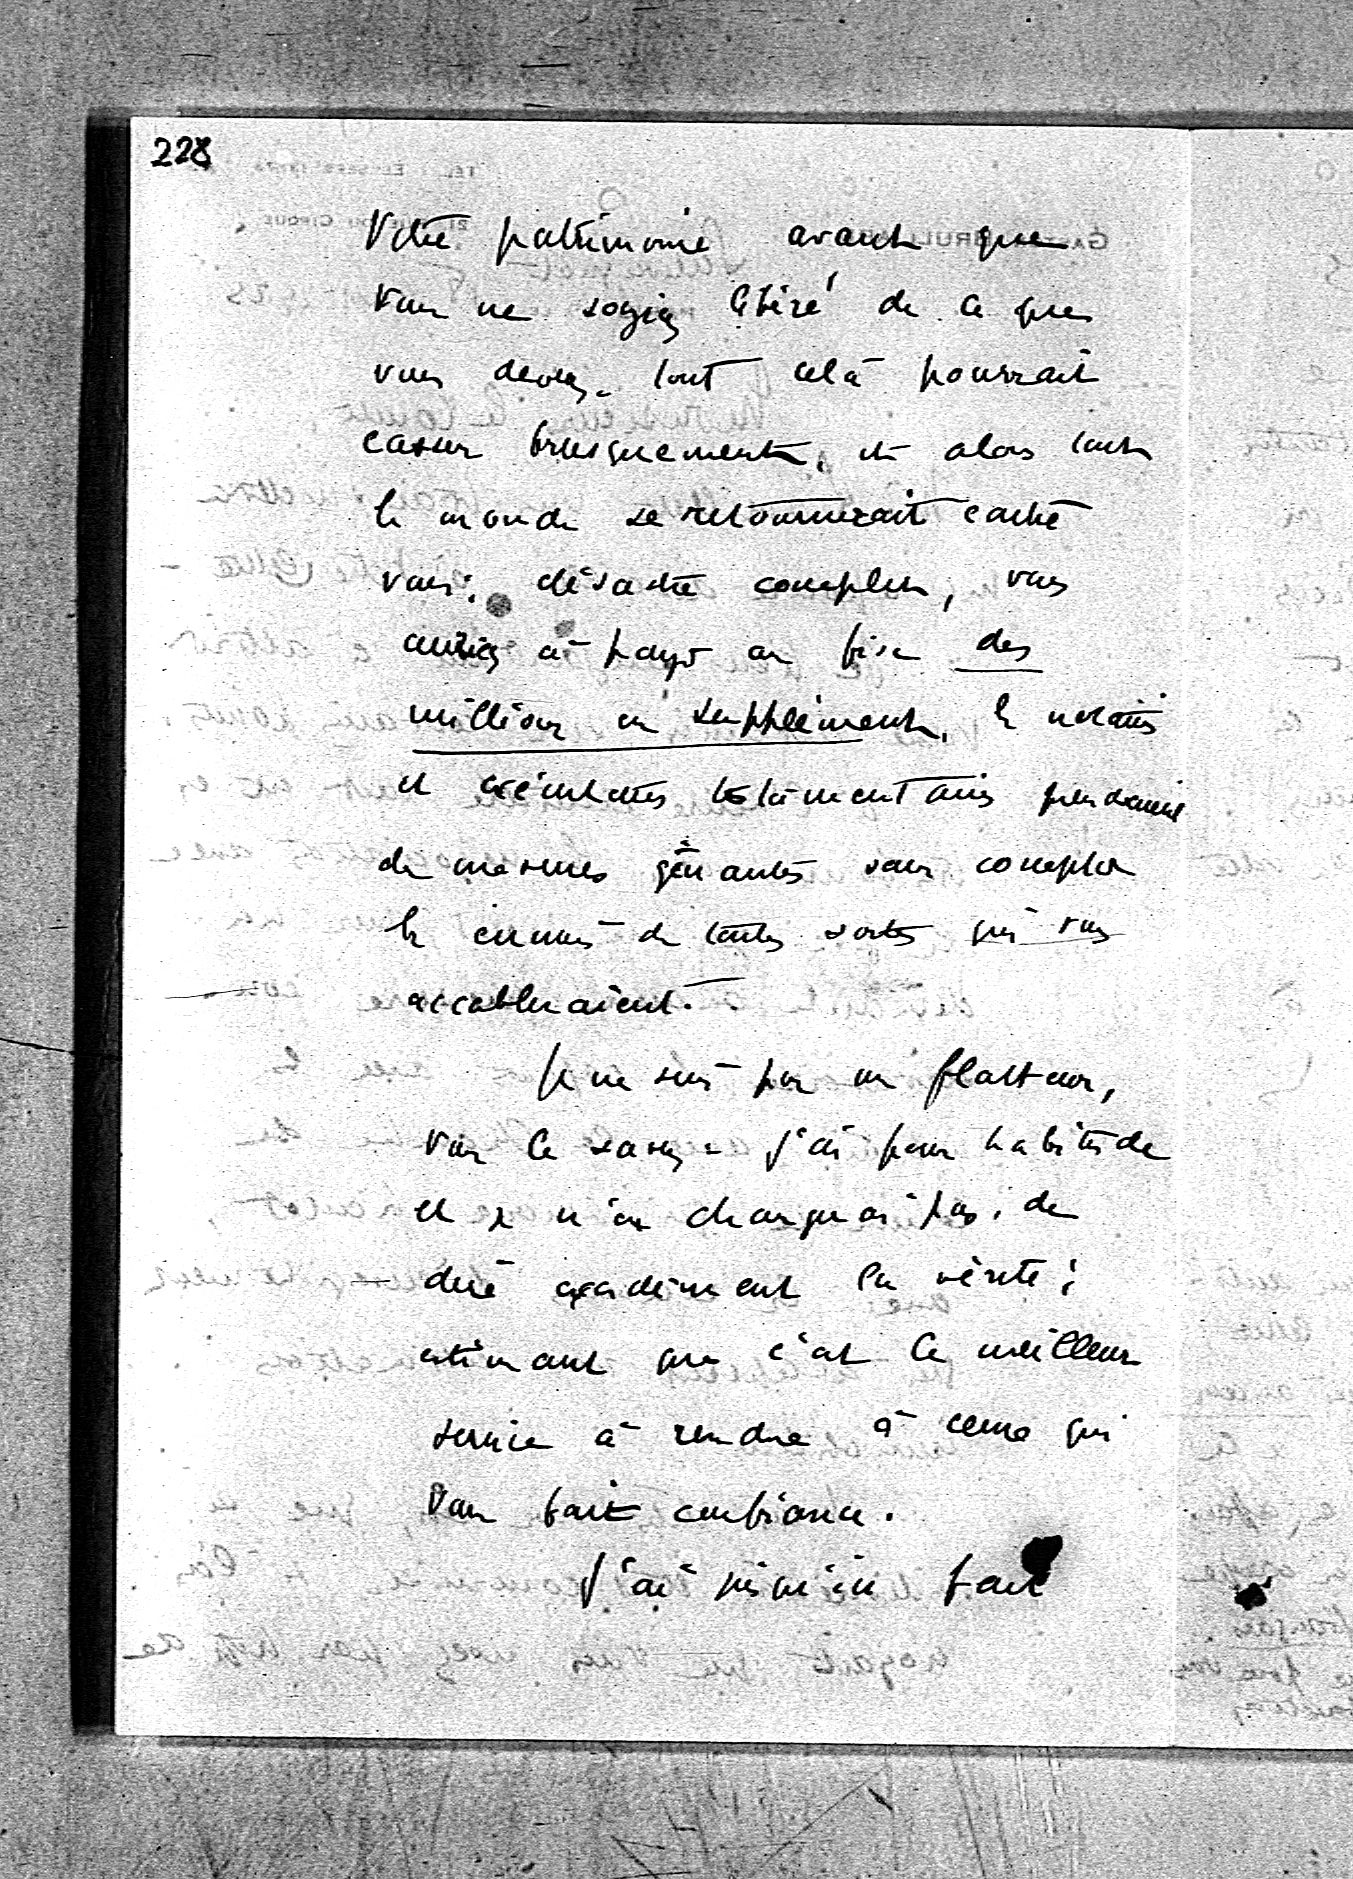 228
Votre patrimoine avant que
vous ne soyiez libéré de ce que
vous devez. tout celà pourrait
casser brusquement, et alors tout
le monde se retournerait contre
vous; désastre complet, vous
auriez à payer au fisc des
millions en supplément, le notaire
et exécuteurs testamentaires prendraient
des mesures gênantes sans compter
les ennuis de toutes sortes qui vous
accableraient.
Je ne suis pas un flatteur,
vous le savez - j'ai pour habitude
et je n'en changerai pas, de
dire carrément la vérité;
estimant que c'est le meilleur
service à rendre à ceux qui
vous font confiance.
J'ai fait